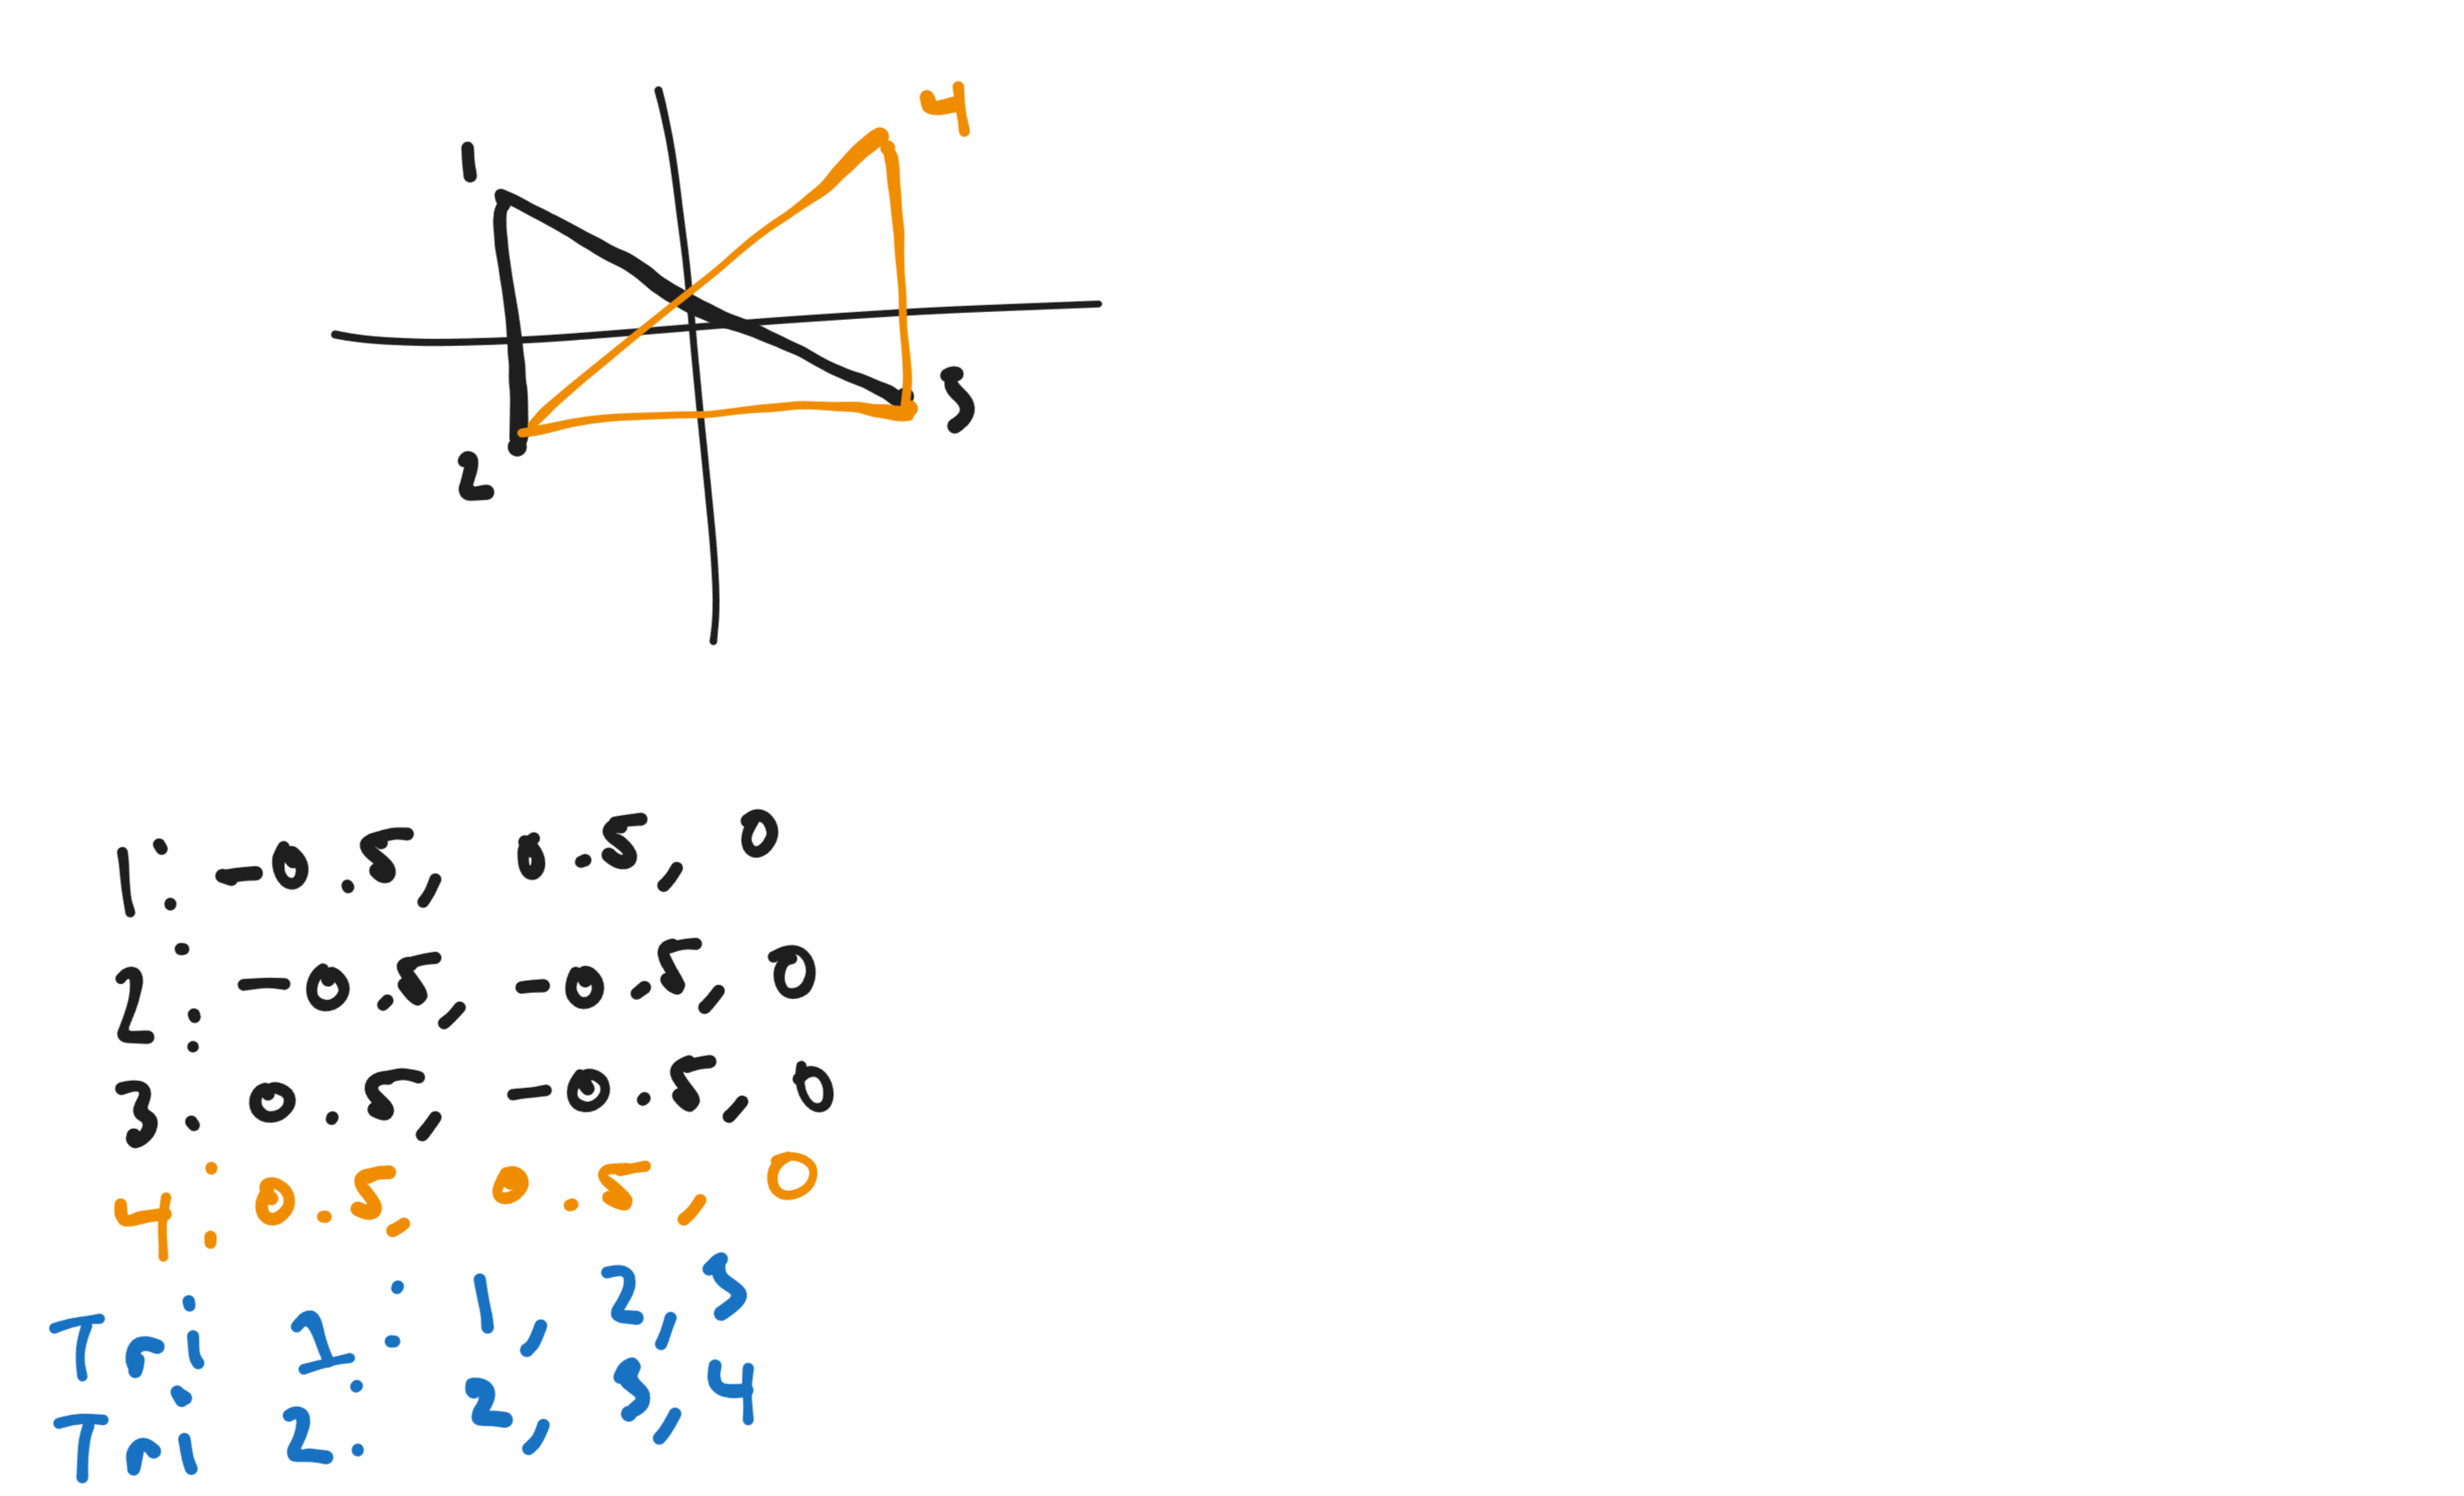 4
1
3
2
1: -0.5, 0.5, 0
2: -0.5, -0.5, 0
3: 0.5, -0.5, 0
4: 0.5, 0.5, 0
Tri 1: 1, 2, 3
Tri 2: 2, 3, 4